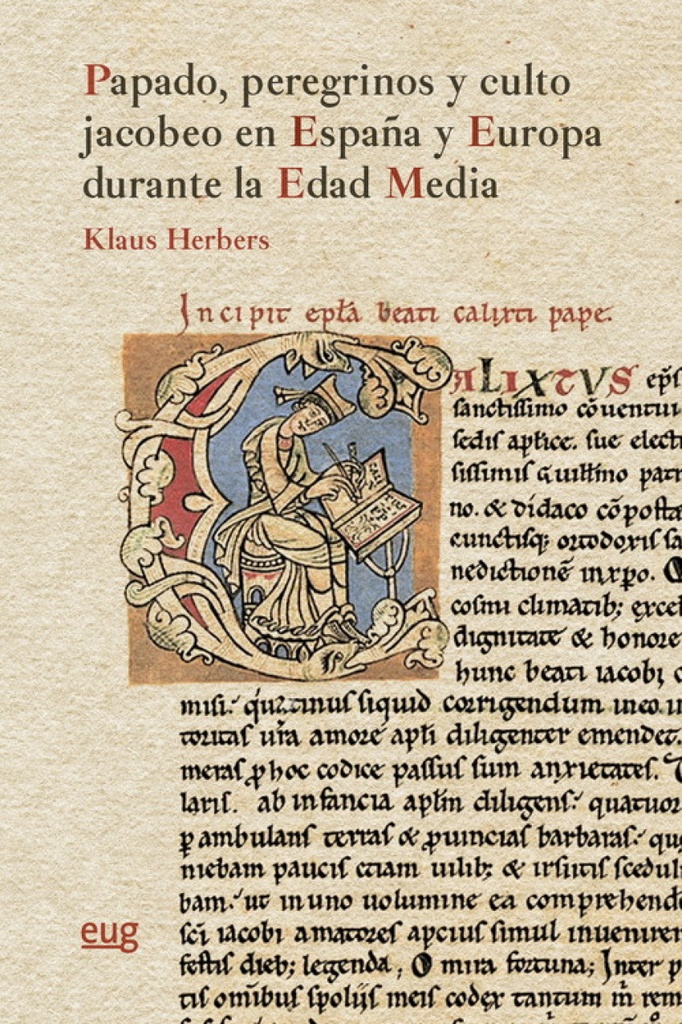 Papado, peregrinos y culto
jacobeo en España y Europa
durante la Edad Media
Klaus Herbers
Incipit epła beati calixti pape.
ALIXTVS ep̄s
sanctissimo cōuentui
sedis aplice. sue elect
sissimis Guillmo patr
no. & didaco cōposta
cunctisq; ortodoxis sa
nedictionē in xpo.
cosmi climatib; excel
dignitate & honore
hunc beati iacobi c
misi. siquid corrigendum in eo
toritas ura amore apli diligenter emendet.
meras p hoc codice passus sum anxietates.
laris. ab infancia aplm diligens. quatuor
p ambulans terras & puincias barbaras. que
niebam paucis etiam uilib; & irsutis scedul
bam. ut in uno uolumine ea comprehende
sci iacobi amatores apcius simul inuenirent
festis dieb; legenda, O mira fortuna; Inter
tis omibus spolijs meis codex tantum m rem
eug